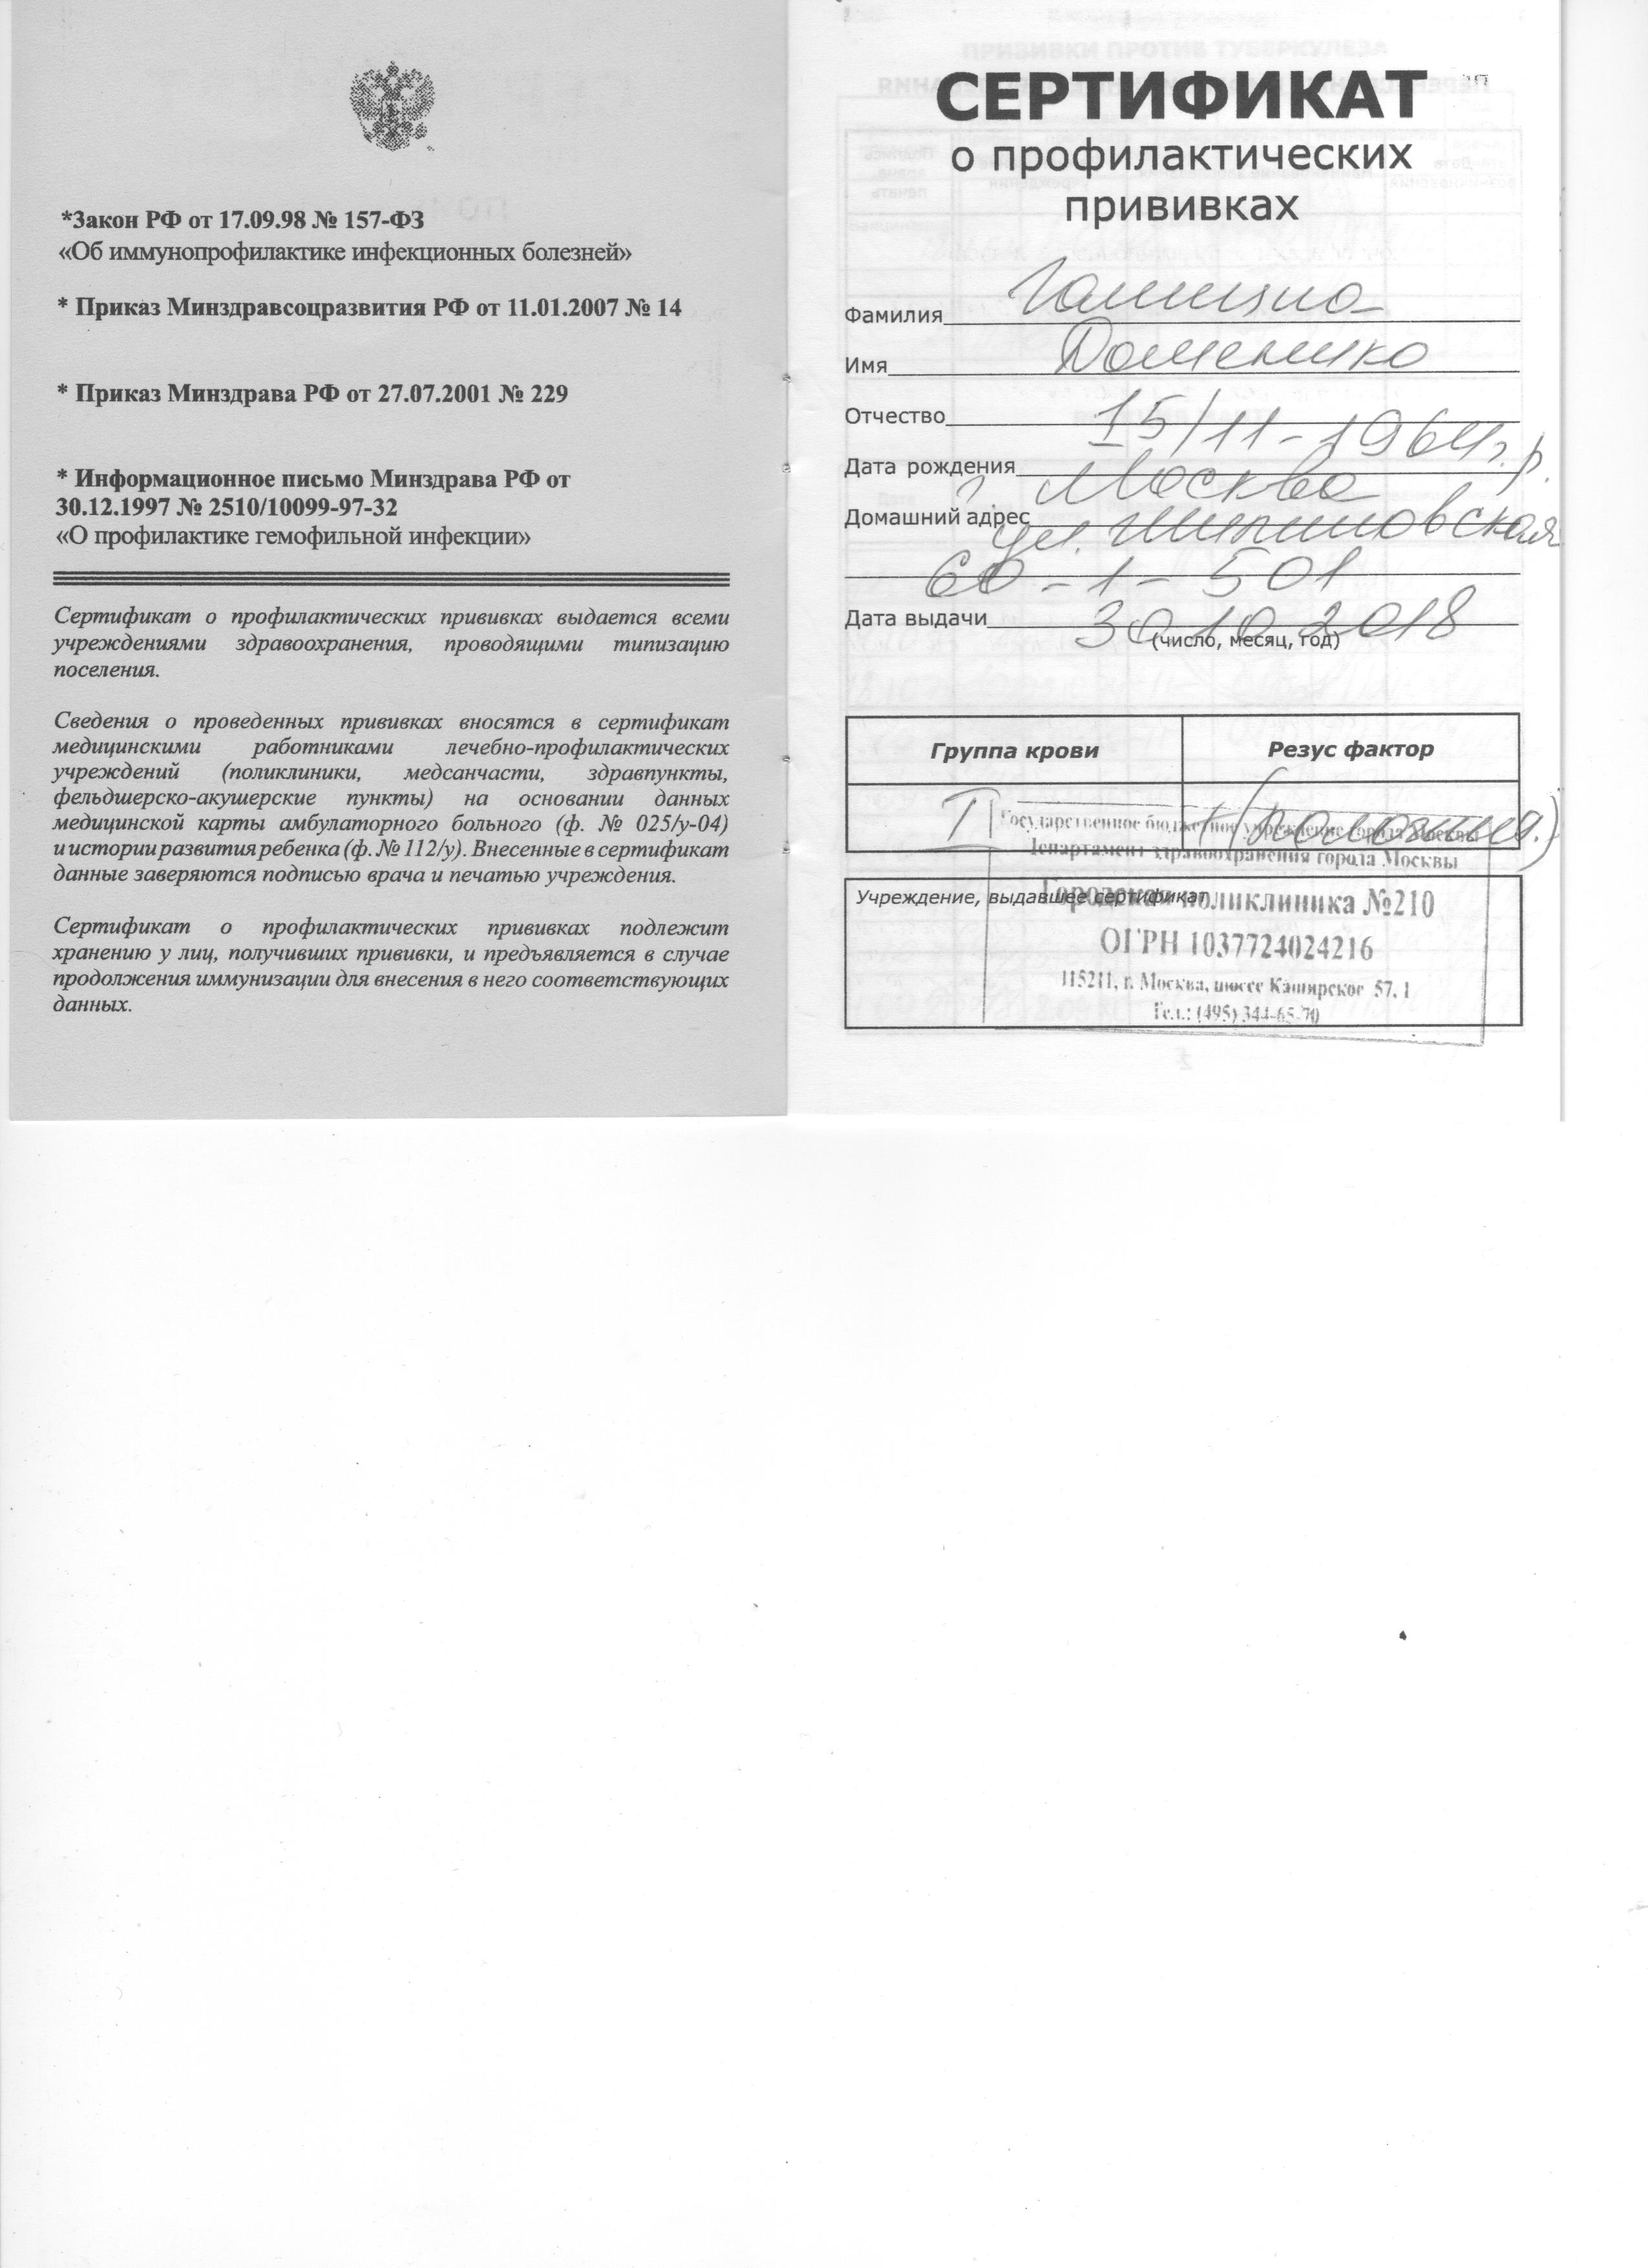 *Закон РФ от 17.09.98 № 157-ФЗ
«Об иммунопрофилактике инфекционных болезней»
* Приказ Минздравсоцразвития РФ от 11.01.2007 № 14
* Приказ Минздрава РФ от 27.07.2001 № 229
* Информационное письмо Минздрава РФ от
30.12.1997 № 2510/10099-97-32
«О профилактике гемофильной инфекции»
Сертификат о профилактических прививках выдается всеми
учреждениями здравоохранения, проводящими типизацию
поселения.
Сведения о проведенных прививках вносятся в сертификат
медицинскими работниками лечебно-профилактических
учреждений (поликлиники, медсанчасти, здравпункты,
фельдшерско-акушерские пункты) на основании данных
медицинской карты амбулаторного больного (ф. № 025/у-04)
и истории развития ребенка (ф. № 112/у). Внесенные в сертификат
данные заверяются подписью врача и печатью учреждения.
Сертификат о профилактических прививках подлежит
хранению у лиц, получивших прививки, и предъявляется в случае
продолжения иммунизации для внесения в него соответствующих
данных.
СЕРТИФИКАТ
о профилактических
прививках
Фамилия
Имя Доменико
Отчество
Дата рождения 15/11-1964г.р.
Домашний адрес г. Москва
ул. Шипиловская
60-1-501
Дата выдачи 30.10.2018
(число, месяц, год)
Группа крови Резус фактор
I +(положит.)
Государственное бюджетное учреждение города Москвы
Департамент здравоохранения города Москвы
Учреждение, выдавшее сертификат
Городская поликлиника №210
ОГРН 1037724024216
115211, г. Москва, шоссе Каширское 57, 1
Тел.: (495) 344-65-70